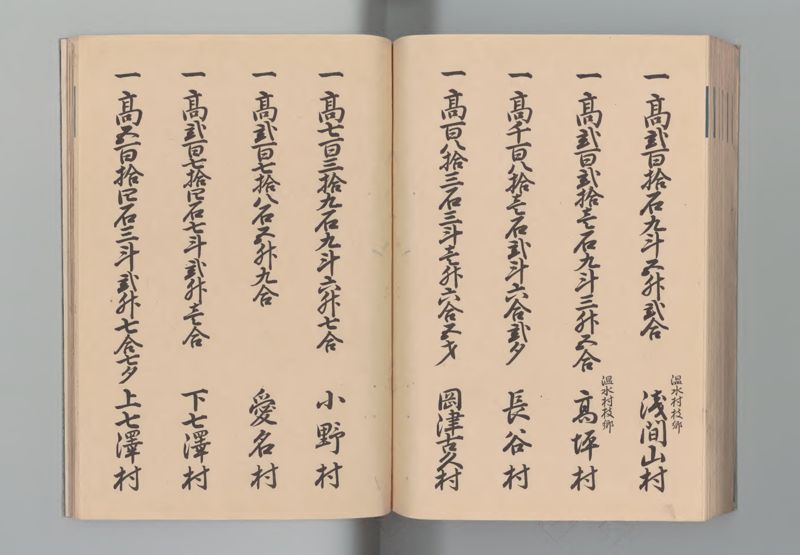 一高弐百拾石九斗五升弐合
温水村枝郷
浅間山村
一高弐百弐拾壱石九斗三升五合
温水村枝郷
高坪村
一高千百八拾壱石弐斗六合弐夕
長谷村
一高百八拾三石三斗壱升六合五才
岡津古久村
一高七百三拾九石九斗六升七合
小野村
一高弐百七拾八石五升九合
愛名村
一高弐百七拾四石七斗弐升壱合
下七澤村
一高五百拾四石三斗弐升七合七夕
上七澤村